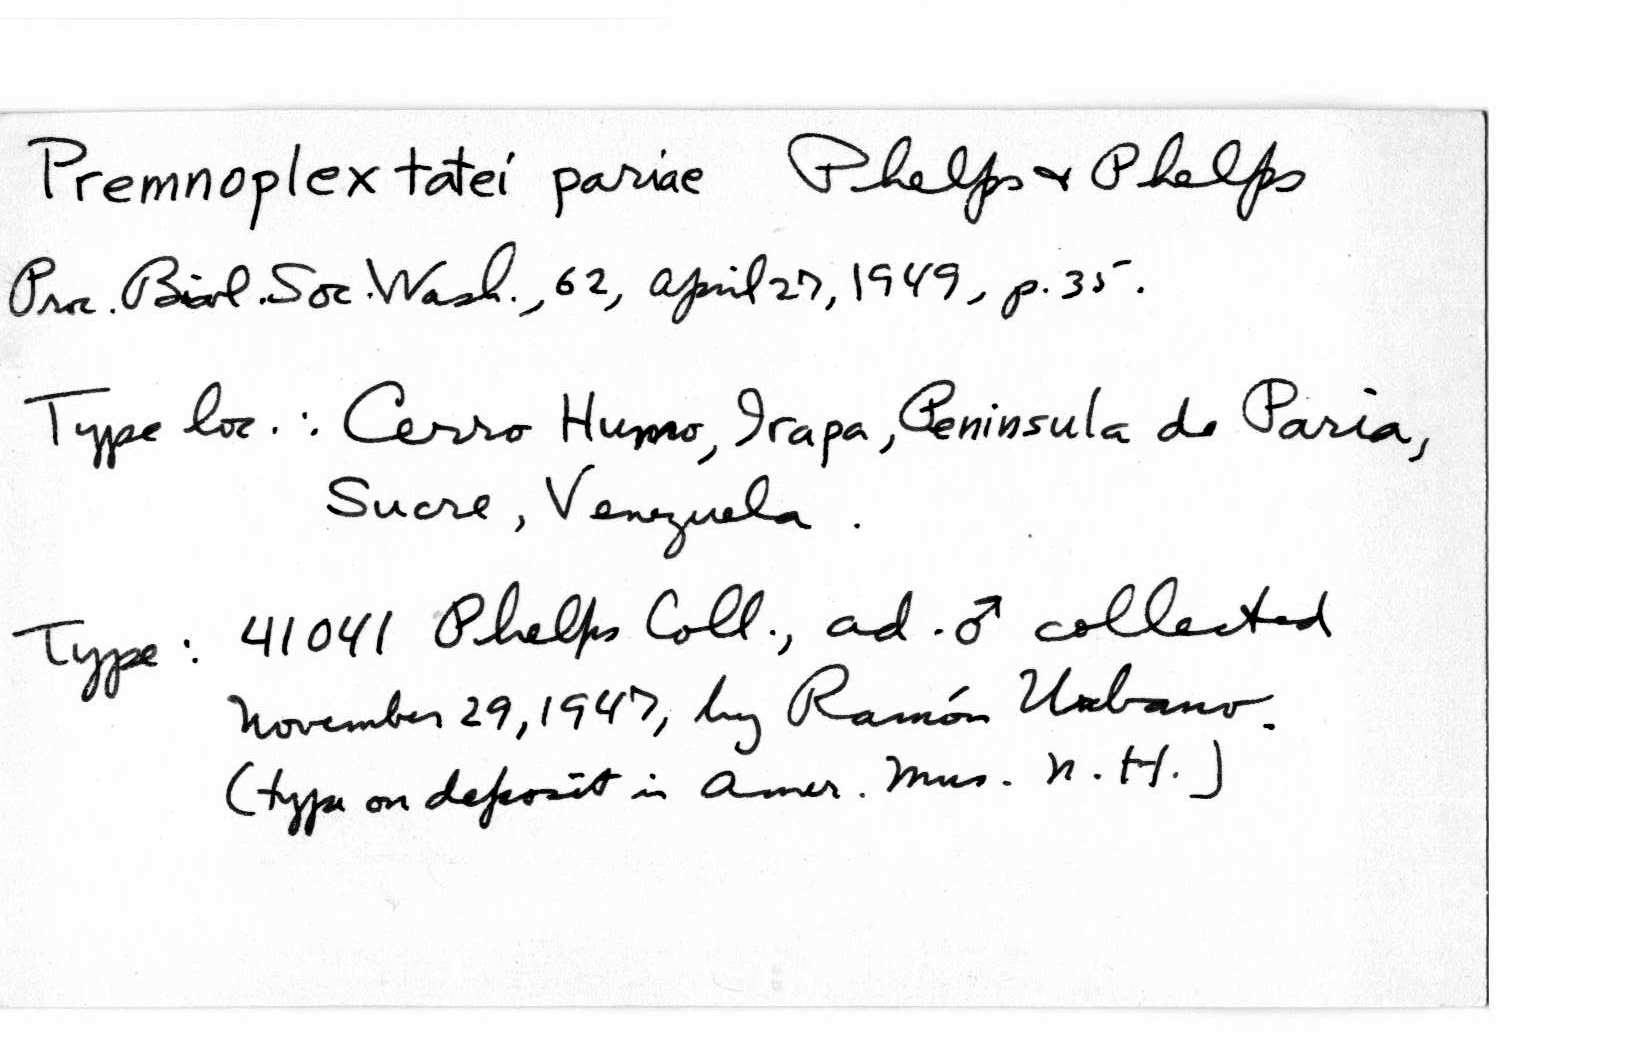 Premnoplex tatei pariae Phelps & Phelps
Proc. Biol. Soc. Wash., 62, April 27, 1949, p. 35.
Type loc.: Cerro Humo, Irapa, Peninsula de Paria,
Sucre, Venezuela.
Type: 41041 Phelps Coll., ad. ♂ collected
November 29, 1947, by Ramón Urbano.
(type on deposit in Amer. Mus. N. H.)